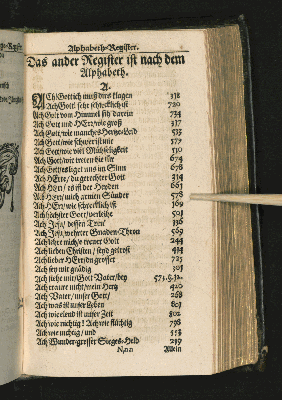 Alphabeth-Register.
Das ander Register ist nach dem
Alphabeth.
A.
Ach Gott ich muß dirs klagen 318
Ach Gott sehr schrecklich ist 720
Ach Gott vom Himmel sih darein 734
Ach Gott und HErr/wie groß 317
Ach Gott/wie manches Hertze-leid 515
Ach Gott/wie
Ach Gott/wie viel Mühseligkeit
Ach Gott/wir treten hie für 674
Ach Gottes in uns im Sinn 678
Ach HErr/du gerechter Gott 314
Ach Herr/ es ist der Heyden 663
Ach Herr/mich armen Sünder 578
Ach HErr/wie schrecklich ist 369
Ach höchster Gott/verleihe 501
Ach Jesu/ dessen Treu 136
Ach Jesu/ Gnaden-Thron 569
Ach lehre mich/o treuer Gott 244
Ach lieben Christen/ seyd getrost 414
Ach lieber HErr 723
Ach sey mir gnädig 301
Ach siehe mit/Gott Vater/
Ach traure nicht/mein Hertz 420
Ach Vater/unser Gott/ 268
Ach was ist unser Leben 801
Ach wie elend ist unser Zeit 802
Ach wie nichtig! Ach wie flüchtig 798
Ach wie nichtig/ und
Ach Wunder-grosser Sieges-Held 219
Allein